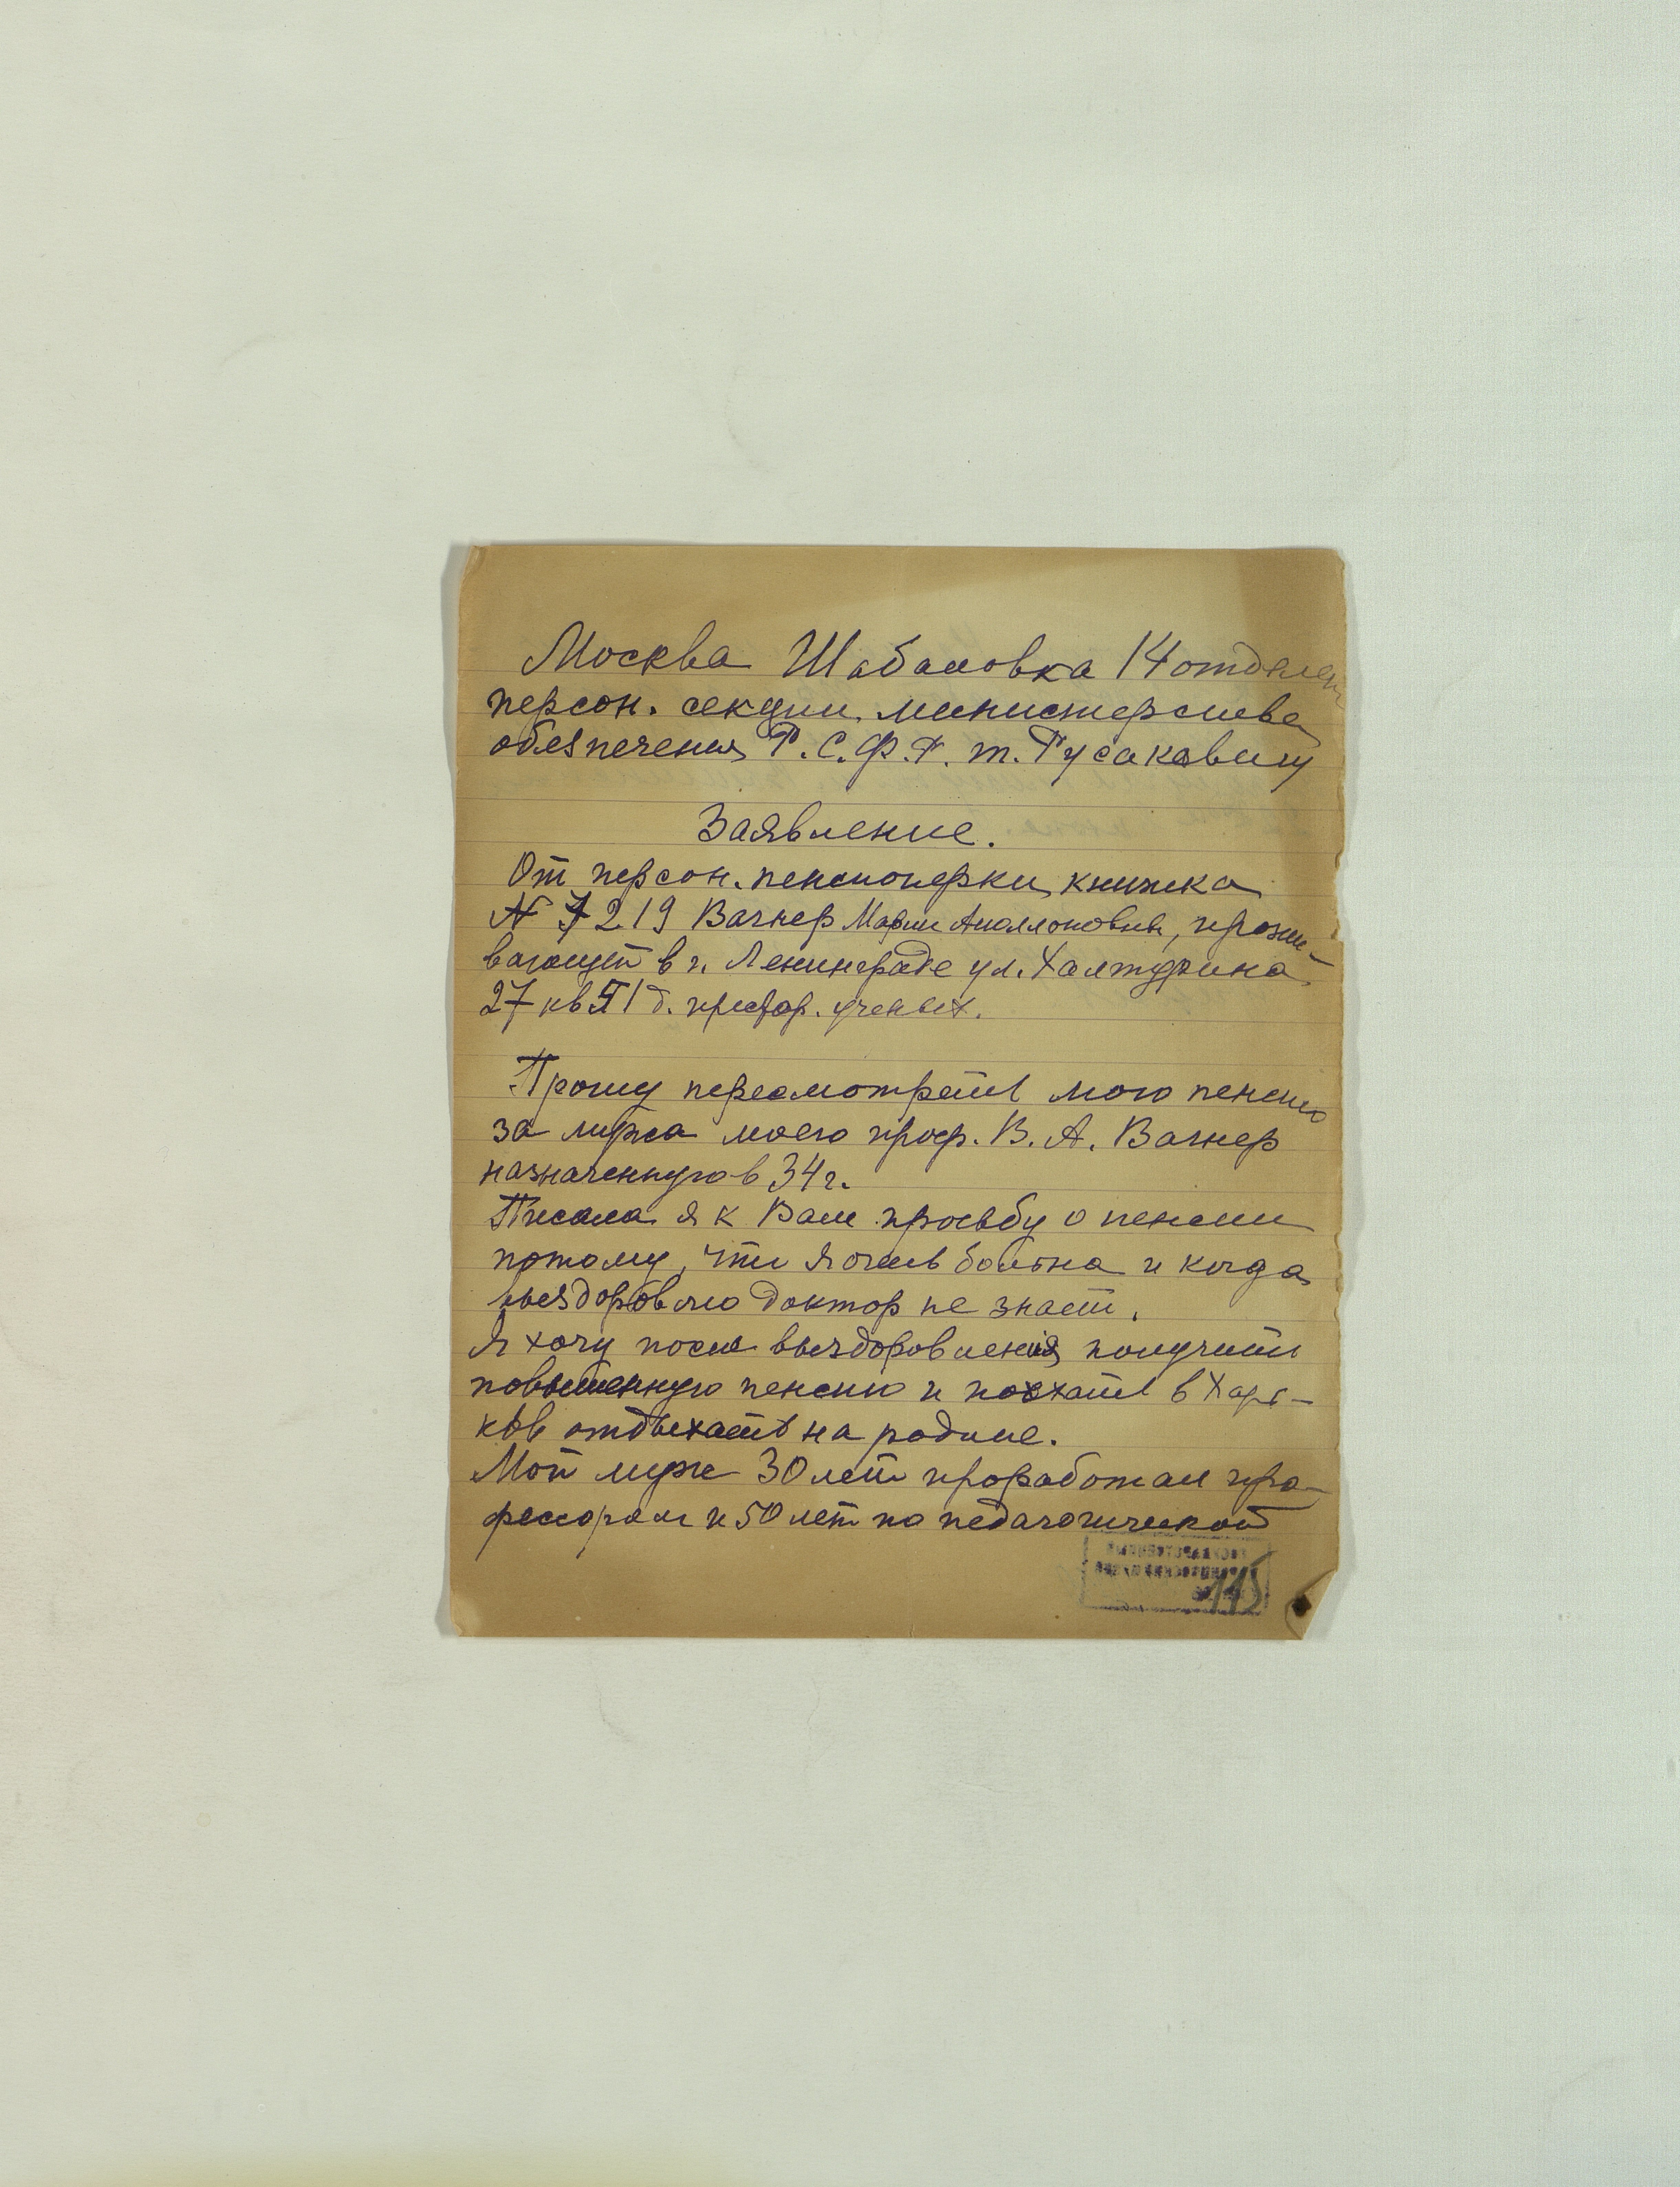 Москва Шаболовка 14 отделен
персон. секции министерства
обезпечения Р.С.Ф.Р. т. Русаковичу
Заявление.
От персон. пенсионерки, книжка
N 7219 Вагнер Марии Аполлоновны, прожи-
вающей в г. Ленинграде ул. Халтурина
27 кв 51 д. престар. ученых.
Прошу пересмотреть мою пенсию
за мужа моего проф. В. А. Вагнер
назначенную в 34 г.
Писала я к Вам просьбу о пенсии
потому, что я очень больна и когда
выздоровлю доктор не знает.
Я хочу после выздоровления получить
повышенную пенсию и поехать в Харь-
ков отдыхать на родине.
Мой муж 30 лет проработал про-
фессором и 50 лет по педагогической
115